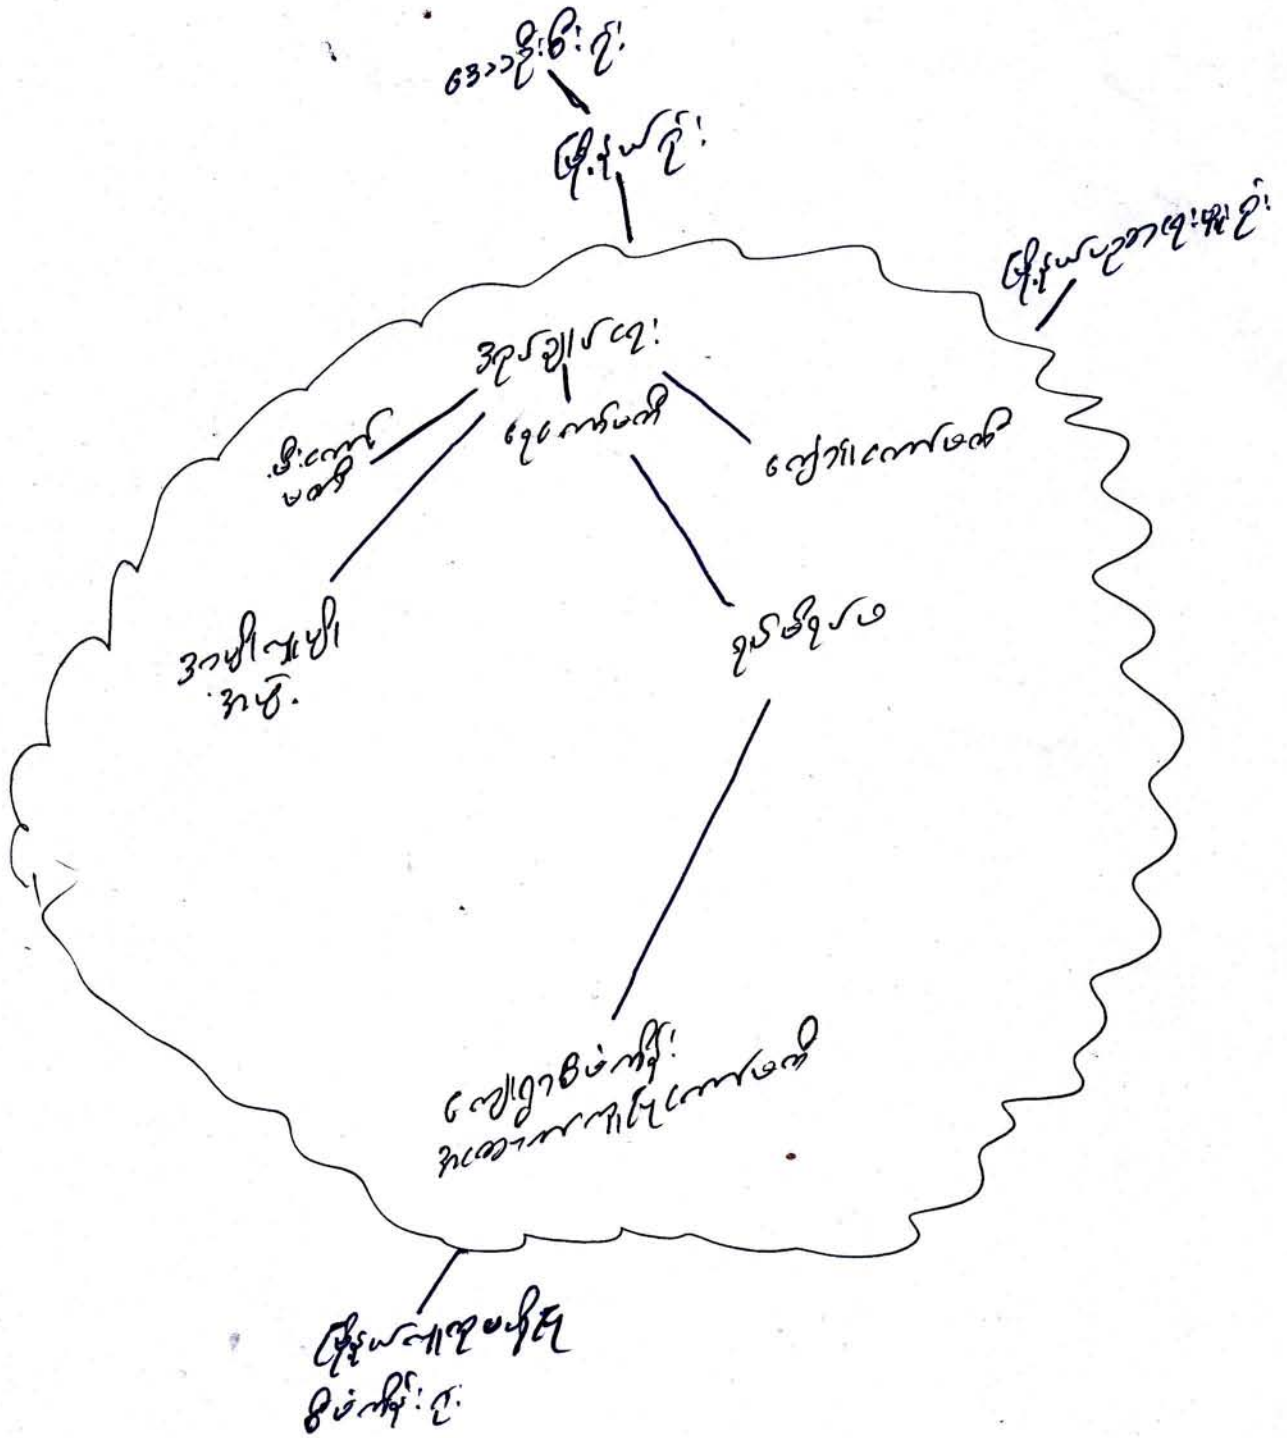 ဒေသဦးစီးရုံး
မြို့နယ်ရုံး
မြို့နယ်ပညာရေးမှူးရုံး
အုပ်ချုပ်ရေး
မီးကော်
မတီ
ရေကော်မတီ
ကျောင်းကော်မတီ
အမျိုးသမျိုး
အဖွဲ့
ရပ်မိရပ်ဖ
ကျေးရွာစီမံကိန်း
အထောက်အကူပြုကော်မတီ
မြို့နယ်လူထုဗဟိုပြု
စီမံကိန်းရုံး